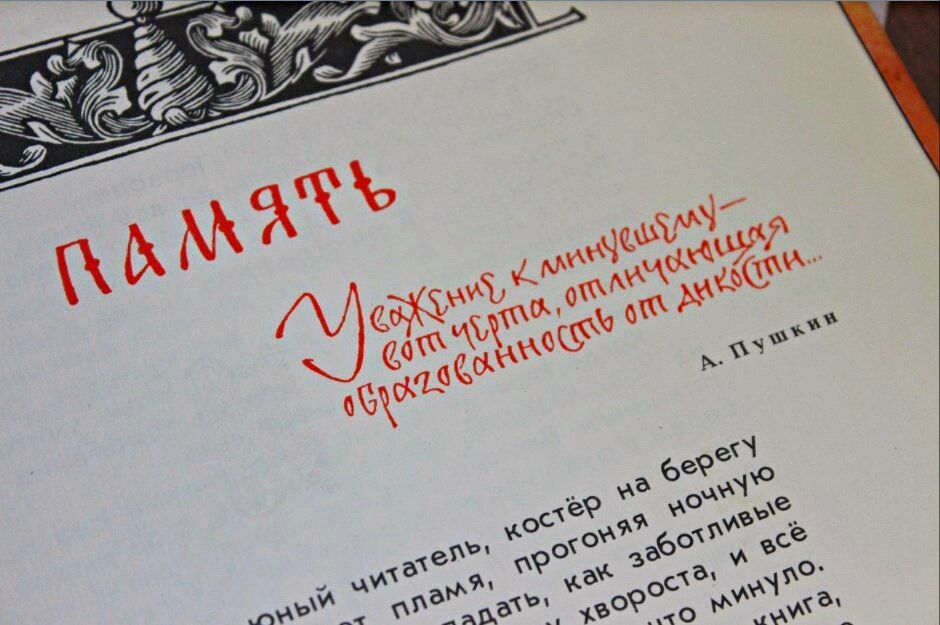 ПАМЯТЬ
Уважение к минувшему—
вот черта, отличающая
образованность от дикости...
А. Пушкин
юный читатель, костёр на берегу
пламя, прогоняя ночную
как заботливые
хвороста, и всё
что минуло.
книга,